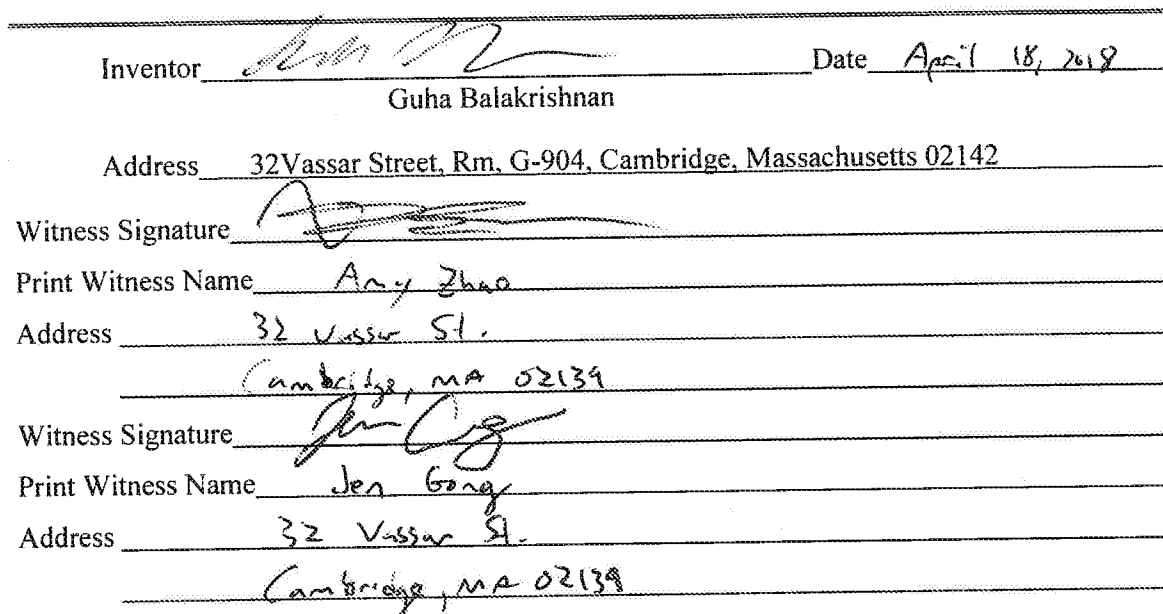 Inventor Date April 18, 2018
Guha Balakrishnan
Address 32Vassar Street, Rm, G-904, Cambridge, Massachusetts 02142
Witness Signature
Print Witness Name Amy Zhao
Address 32 Vassar St.
Cambridge, MA 02139
Witness Signature
Print Witness Name Jen Gong
Address 32 Vassar St.
Cambridge, MA 02139